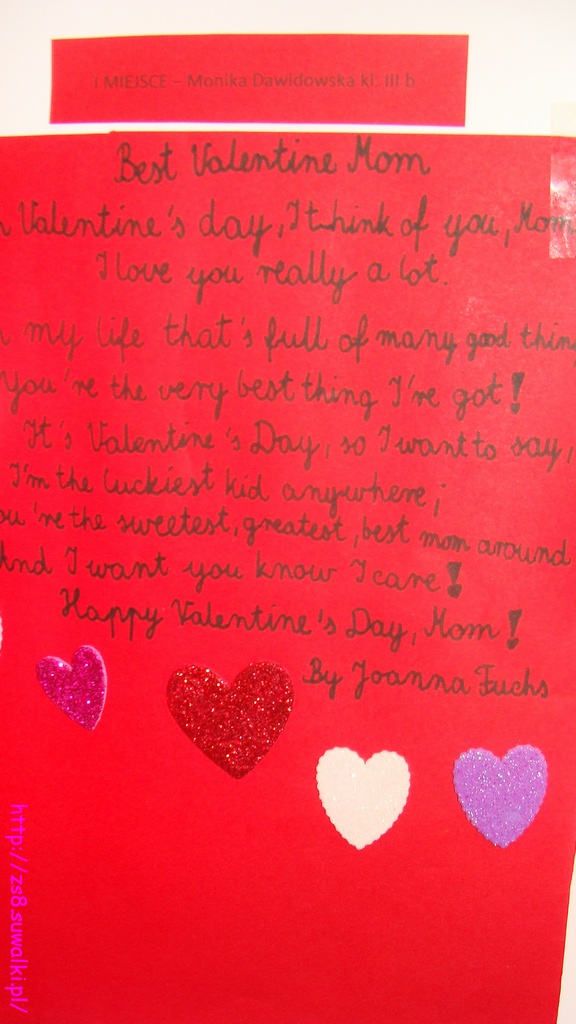 I MIEJSCE – Monika Dawidowska kl. III b
Best Valentine Mom
Valentine's day, I think of you, Mom
I love you really a lot.
my life that's full of many good thin
You're the very best thing I've got!
It's Valentine's Day, so I want to say,
I'm the luckiest kid anywhere;
ou're the sweetest, greatest, best mom around
And I want you know I care!
Happy Valentine's Day, Mom!
By Joanna Fuchs
http://zs8.suwalki.pl/